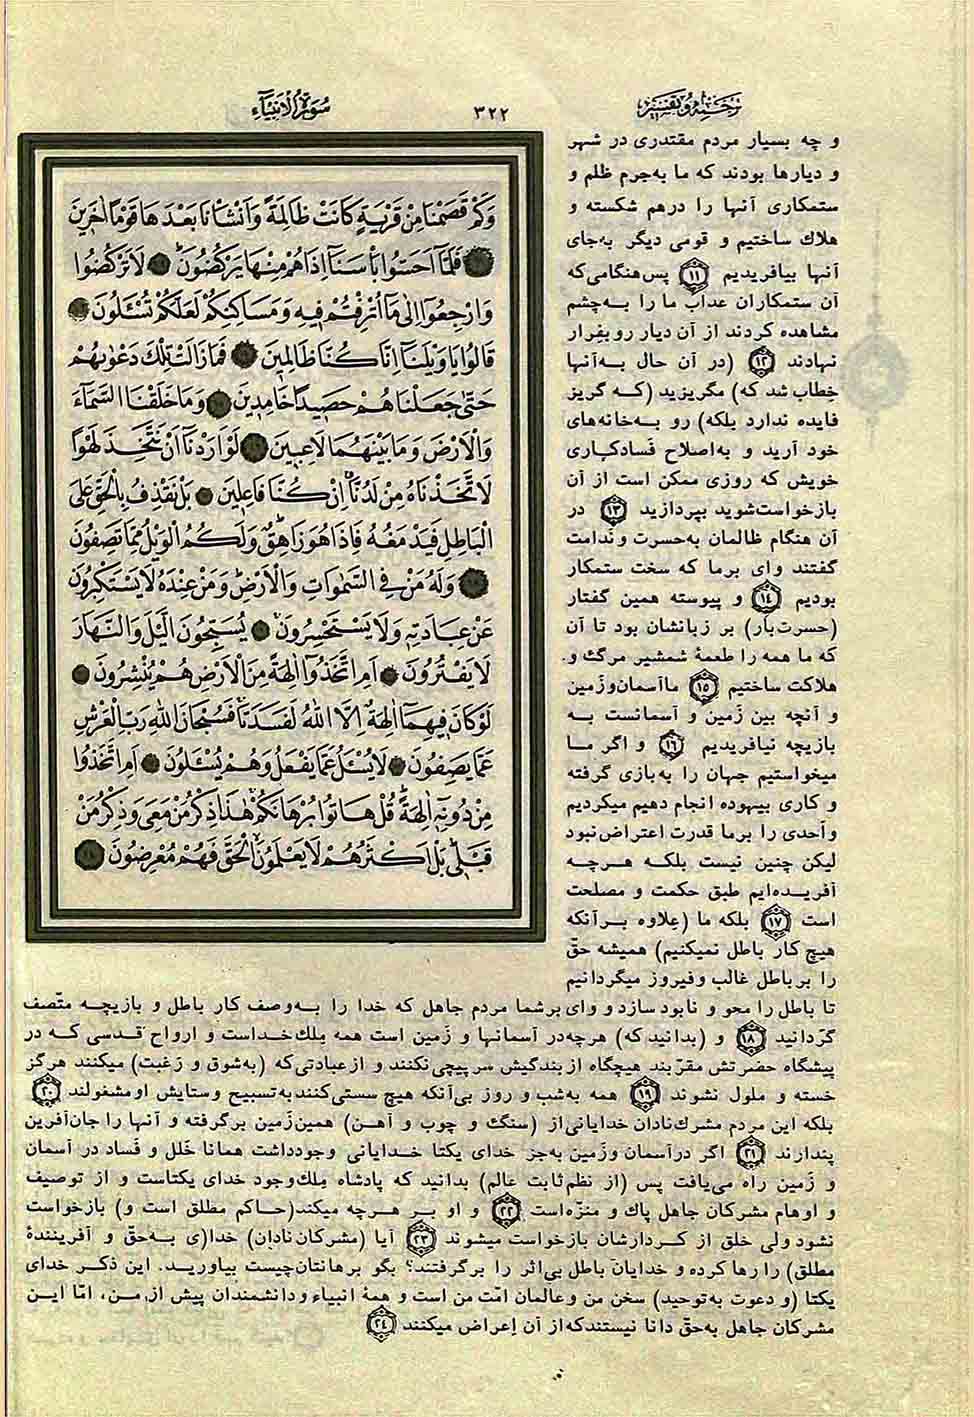 ترجمه و تفسیر
۳۲۲
سُورَةُ الْاَنْبِیَآءِ
وَكَمْ قَصَمْنَا مِنْ قَرْيَةٍ كَانَتْ ظَالِمَةً وَاَنْشَاْنَا بَعْدَهَا قَوْمًا اٰخَرِينَ
فَلَمَّآ اَحَسُّوا بَاْسَنَآ اِذَا هُمْ مِنْهَا يَرْكُضُونَ لَا تَرْكُضُوا
وَارْجِعُوٓا اِلٰى مَآ اُتْرِفْتُمْ فِيهِ وَمَسَاكِنِكُمْ لَعَلَّكُمْ تُسْئَلُونَ
قَالُوا يَا وَيْلَنَآ اِنَّا كُنَّا ظَالِمِينَ فَمَا زَالَتْ تِلْكَ دَعْوٰيهُمْ
حَتّٰى جَعَلْنَاهُمْ حَصِيدًا خَامِدِينَ وَمَا خَلَقْنَا السَّمَآءَ
وَالْاَرْضَ وَمَا بَيْنَهُمَا لَاعِبِينَ لَوْ اَرَدْنَآ اَنْ نَتَّخِذَ لَهْوًا
لَاتَّخَذْنَاهُ مِنْ لَدُنَّآ اِنْ كُنَّا فَاعِلِينَ بَلْ نَقْذِفُ بِالْحَقِّ عَلَى
الْبَاطِلِ فَيَدْمَغُهُ فَاِذَا هُوَ زَاهِقٌ وَلَكُمُ الْوَيْلُ مِمَّا تَصِفُونَ
وَلَهُ مَنْ فِي السَّمٰوَاتِ وَالْاَرْضِ وَمَنْ عِنْدَهُ لَا يَسْتَكْبِرُونَ
عَنْ عِبَادَتِهٖ وَلَا يَسْتَحْسِرُونَ يُسَبِّحُونَ الَّيْلَ وَالنَّهَارَ
لَا يَفْتُرُونَ اَمِ اتَّخَذُوٓا اٰلِهَةً مِنَ الْاَرْضِ هُمْ يُنْشِرُونَ
لَوْ كَانَ فِيهِمَآ اٰلِهَةٌ اِلَّا اللّٰهُ لَفَسَدَتَا فَسُبْحَانَ اللّٰهِ رَبِّ الْعَرْشِ
عَمَّا يَصِفُونَ لَا يُسْئَلُ عَمَّا يَفْعَلُ وَهُمْ يُسْئَلُونَ اَمِ اتَّخَذُوا
مِنْ دُونِهٖٓ اٰلِهَةً قُلْ هَاتُوا بُرْهَانَكُمْ هٰذَا ذِكْرُ مَنْ مَعِيَ وَذِكْرُ مَنْ
قَبْلِي بَلْ اَكْثَرُهُمْ لَا يَعْلَمُونَ الْحَقَّ فَهُمْ مُعْرِضُونَ
و چه بسیار مردم مقتدری در شهر
و دیارها بودند که ما به‌جرم ظلم و
ستمکاری آنها را درهم شکسته و
هلاك ساختیم و قومی دیگر به‌جای
آنها بیافریدیم ۱۱ پس هنگامی‌که
آن ستمکاران عذاب ما را به‌چشم
مشاهده کردند از آن دیار رو بفرار
نهادند ۱۲ (در آن حال به‌آنها
خطاب شد که) مگریزید (که گریز
فایده ندارد بلکه) رو به‌خانه‌های
خود آرید و به‌اصلاح فسادکاری
خویش که روزی ممکن است از آن
بازخواست‌شوید بپردازید ۱۳ در
آن هنگام ظالمان به‌حسرت و ندامت
گفتند وای برما که سخت ستمکار
بودیم ۱۴ و پیوسته همین گفتار
(حسرت‌بار) بر زبانشان بود تا آن
که ما همه را طعمهٔ شمشیر مرگ و
هلاکت ساختیم ۱۵ ما آسمان و زمین
و آنچه بین زمین و آسمانست به
بازیچه نیافریدیم ۱۶ و اگر ما
میخواستیم جهان را به بازی گرفته
و کاری بیهوده انجام دهیم میکردیم
و احدی را برما قدرت اعتراض نبود
لیکن چنین نیست بلکه هرچه
آفریده‌ایم طبق حکمت و مصلحت
است ۱۷ بلکه ما (علاوه برآنکه
هیچ کار باطل نمیکنیم) همیشه حقّ
را بر باطل غالب و فیروز میگردانیم
تا باطل را محو و نابود سازد و وای برشما مردم جاهل که خدا را به‌وصف کار باطل و بازیچه متّصف
گردانید ۱۸ و (بدانید که) هرچه در آسمانها و زمین است همه ملك خداست و ارواح قدسی که در
پیشگاه حضرتش مقرّبند هیچگاه از بندگیش سرپیچی نکنند و از عبادتی که (به‌شوق و رغبت) میکنند هرگز
خسته و ملول نشوند ۱۹ همه به‌شب و روز بی‌آنکه هیچ سستی کنند به تسبیح و ستایش او مشغولند ۲۰
بلکه این مردم مشرك نادان خدایانی از (سنگ و چوب و آهن) همین زمین برگرفته و آنها را جان‌آفرین
پندارند ۲۱ اگر در آسمان و زمین به‌جز خدای یکتا خدایانی وجود داشت همانا خلل و فساد در آسمان
و زمین راه می‌یافت پس (از نظم ثابت عالم) بدانید که پادشاه ملك وجود خدای یکتاست و از توصیف
و اوهام مشرکان جاهل پاك و منزّه است ۲۲ و او بر هرچه میکند (حاکم مطلق است و) بازخواست
نشود ولی خلق از کردارشان بازخواست میشوند ۲۳ آیا (مشرکان نادان) خدا(ی به‌حقّ و آفرینندهٔ
مطلق) را رها کرده و خدایان باطل بی‌اثر را برگرفتند؟ بگو برهانتان چیست بیاورید. این ذکر خدای
یکتا (و دعوت به توحید) سخن من و عالمان امّت من است و همهٔ انبیاء و دانشمندان پیش از من، امّا این
مشرکان جاهل به‌حقّ دانا نیستند که از آن اِعراض میکنند ۲۴